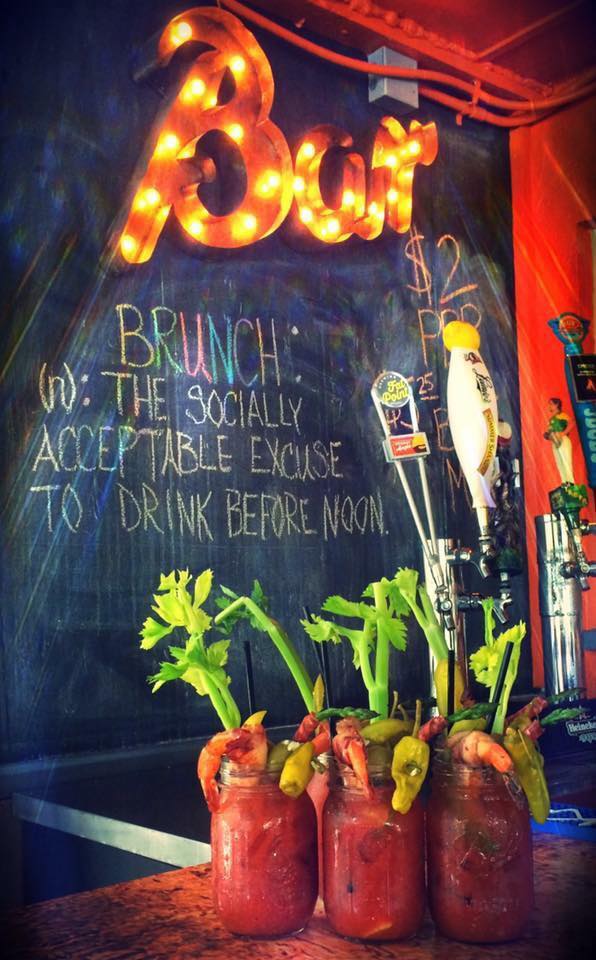 Bar
$2
PBR
BRUNCH:
(n): THE SOCIALLY
ACCEPTABLE EXCUSE
TO DRINK BEFORE NOON.
25
Fat
Point
Heineken